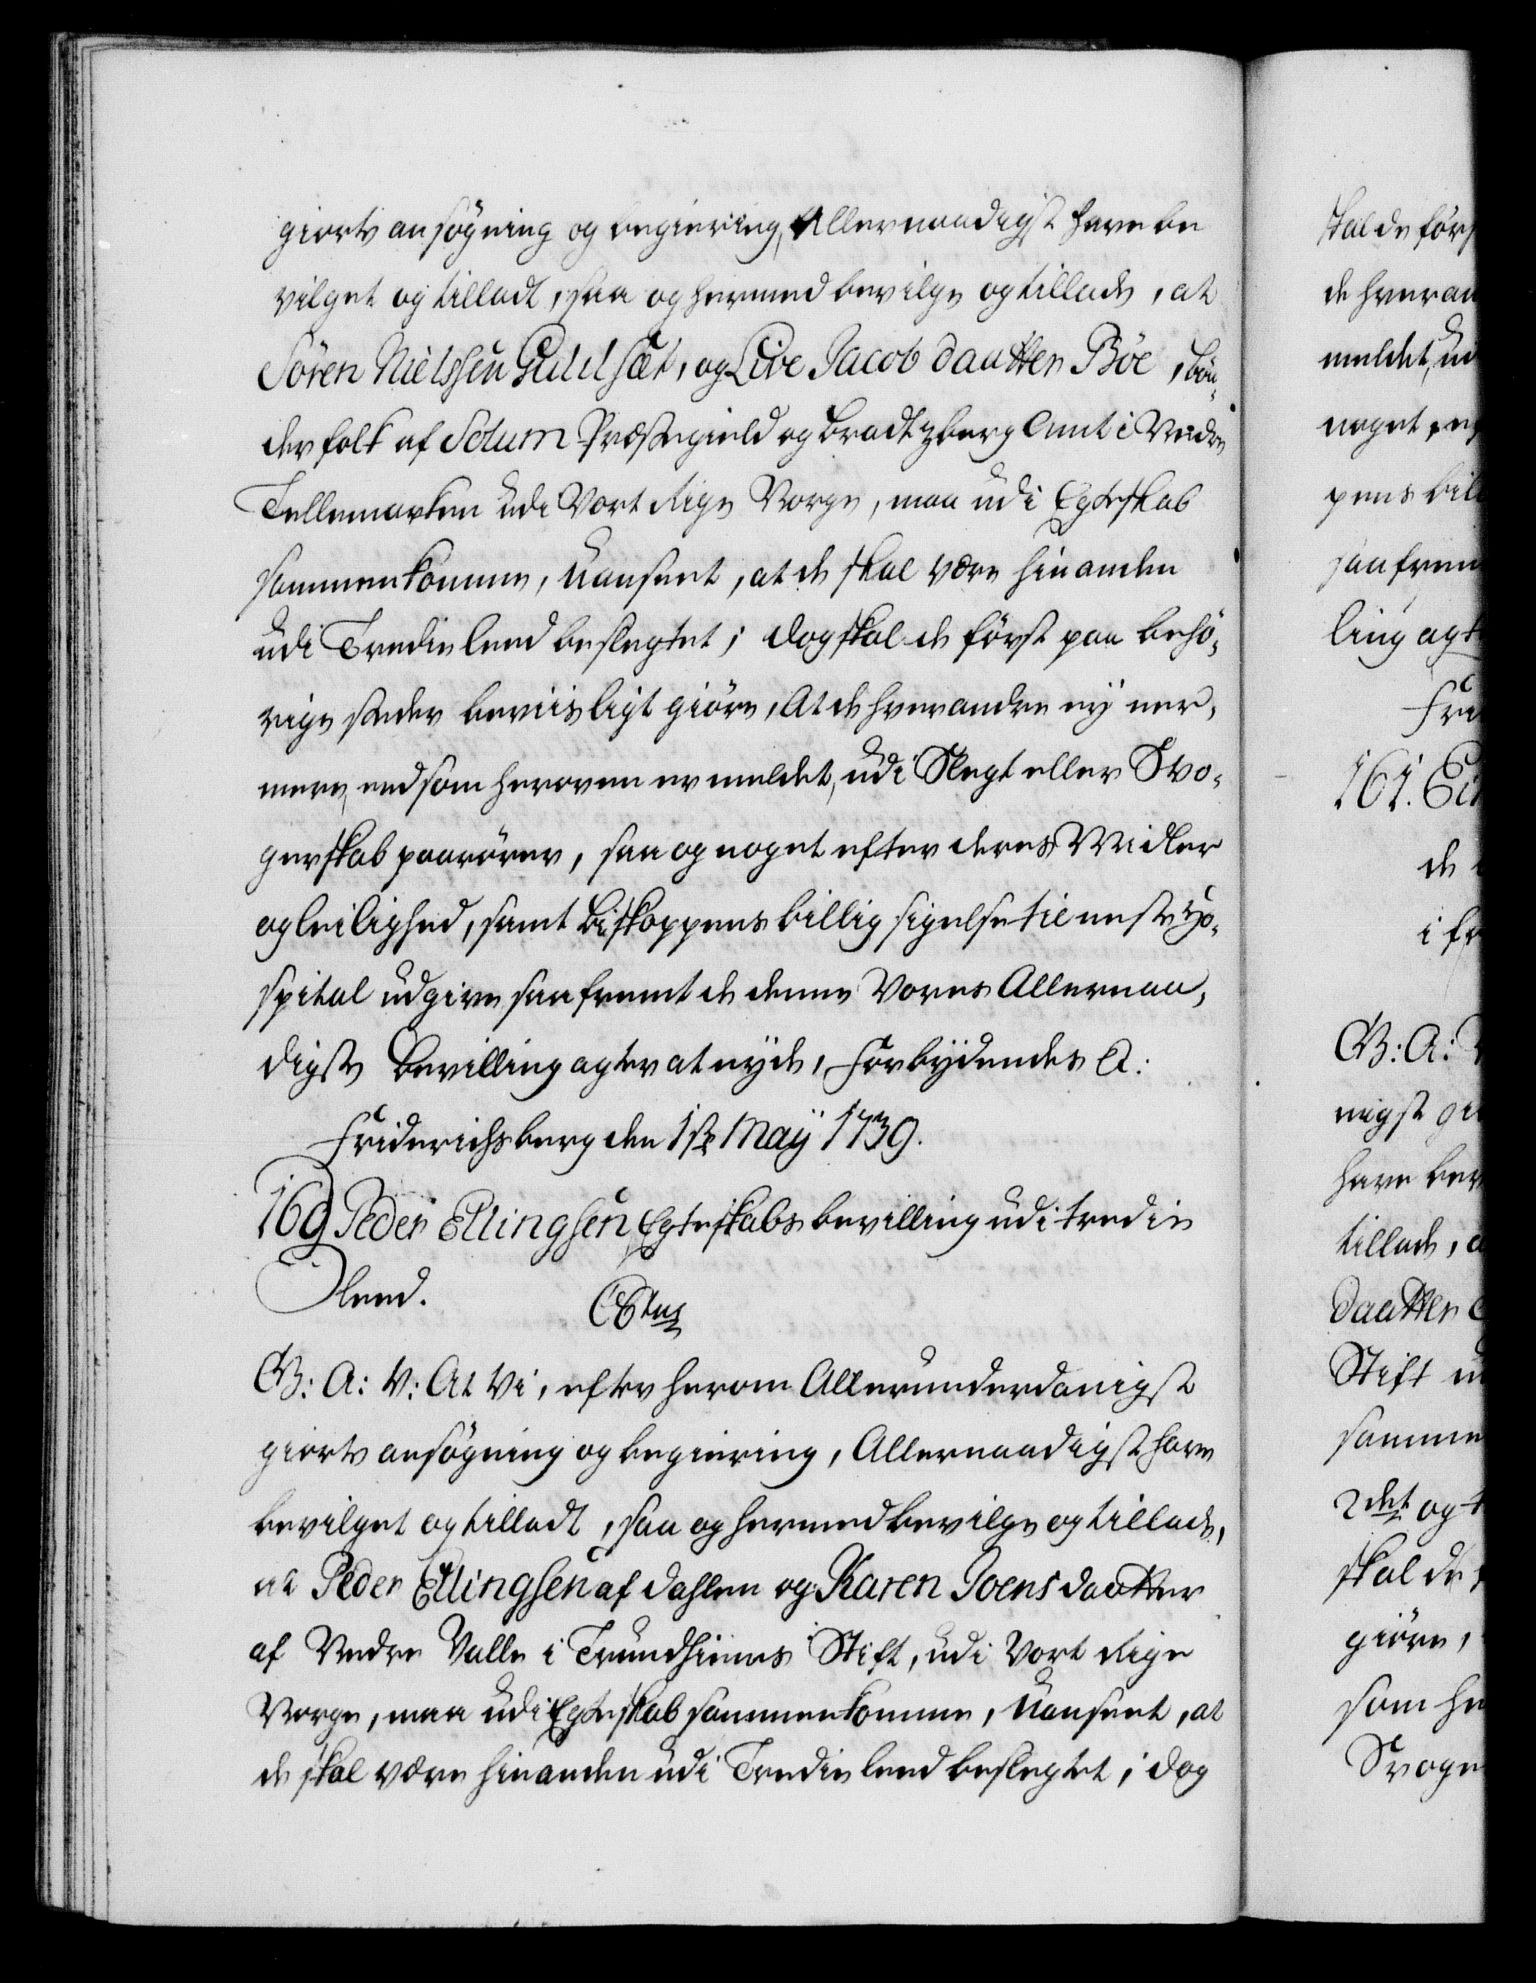 giorte ansøgning og begiering, Allernaadigst have be
vilget og tilladt, saa og hermed bevilge og tillade, at
Sören Nielssen Guldsæt, og Live Jacob daatter Böe, bön-
der folk af Solum Præstegield og Bradtzberg Amt i Nedre
Tellemarken udi Vort Rige Norge, maa udi Egteskab
sammenkomme, uanseet, at de skal være hinanden
udi Tredie leed beslegtet; dog skal de først paa behö-
rige steder beviisligt giöre, At de hverandre ey ner-
mere, end som heroven er meldet, udi Slegt eller Svo-
gerskab paarörer, saa og noget efter deres Midler
og leilighed, samt Biskoppens billig sigelse til neste Ho-
spital udgive saafremt de denne Vores Allernaa-
digste Bevilling agter at nyde, Forbydendes &:
Friderichsberg den 1ste Maÿ 1739.
160 Peder Ellingsen Egteskabs bevilling udi tredie
leed.
G: A: V: At Vi, efter herom Allerunderdanigst
giorte ansøgning og begiering, Allernaadigst have
bevilget og tilladt, saa og hermed bevilge og tillade,
at Peder Ellingsen af Dahlen og Karen Joens daatter
af Nedre Valle i Trundhiems Stift, udi Vort Rige
Norge, maa udi Egteskab sammenkomme, uanseet, at
de skal være hinanden udi Tredie leed beslegtet; dog
skal de förs
de hveran
meldet, ud
noget, eng
pens bil
saa frem
ling agt
Fri
161.
de
i fr
G: A:
nigst gi
have bev
tillade, a
daatter
Stift ud
samme
2det og
skal de
giöre,
som he
Svoge